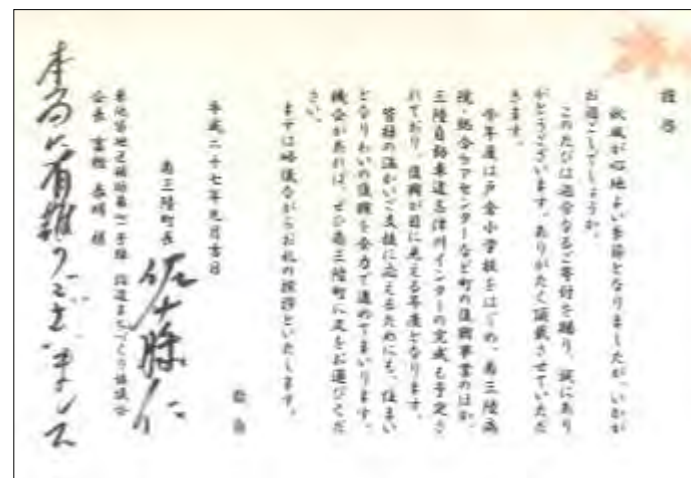 謹啓
秋風が心地よい季節となりましたが、いかが
お過ごしでしょうか。
このたびは過分なるご寄付を賜り、誠にあり
がとうございます。ありがたく頂戴させていただ
きます。
今年度は戸倉小学校をはじめ、南三陸病
院・総合ケアセンターなど町の復興事業のほか、
三陸自動車道志津川インターの完成も予定さ
れており、復興が目に見える年度となります。
皆様の温かいご支援に応えるためにも、住まい
となりわいの復興を全力で進めてまいります。
機会が有れば、ぜひ南三陸町に足をお運びくだ
さい。
まずは略儀ながらお礼の挨拶といたします。
敬白
平成二十七年九月吉日
南三陸町長
佐藤仁
まちづくり協議会
会長 様
本当に有難うございました